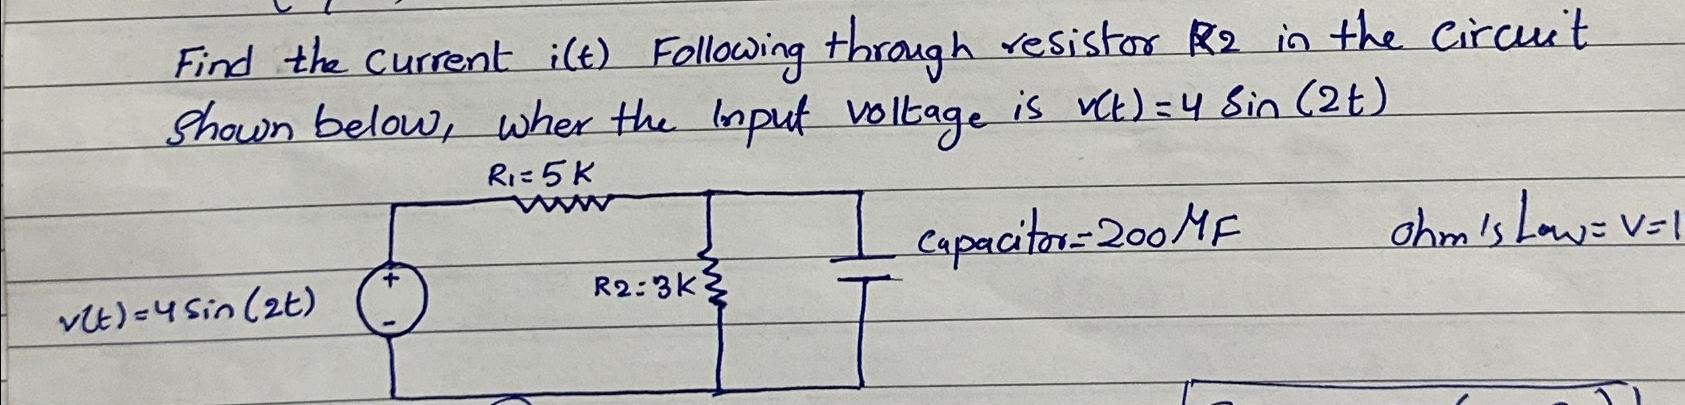 Find the current i(t) Following through resistor R2 in the circuit
shown below, wher the Input voltage is v(t)=4 Sin (2t)
R1=5K
Capacitor=200MF
ohm's Low= V=1
R2:3K
v(t)=4 sin (2t)
+
-